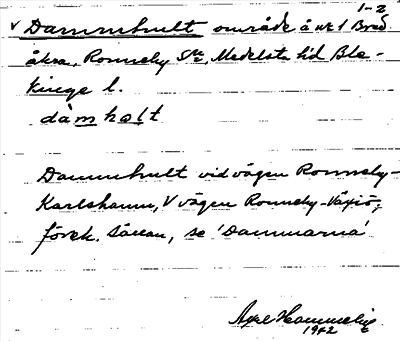 1-2
v Dammhult område å nr 1 Bred-
åkra, Ronneby Sn, Medelsta hd Ble-
kinge l.
dàmhəlt
Dammhult vid vägen Ronneby-
Karlshamn, V vägen Ronneby-Växiö,
förek. såsom, se 'Dammarna'
Axel Hammelig
1942